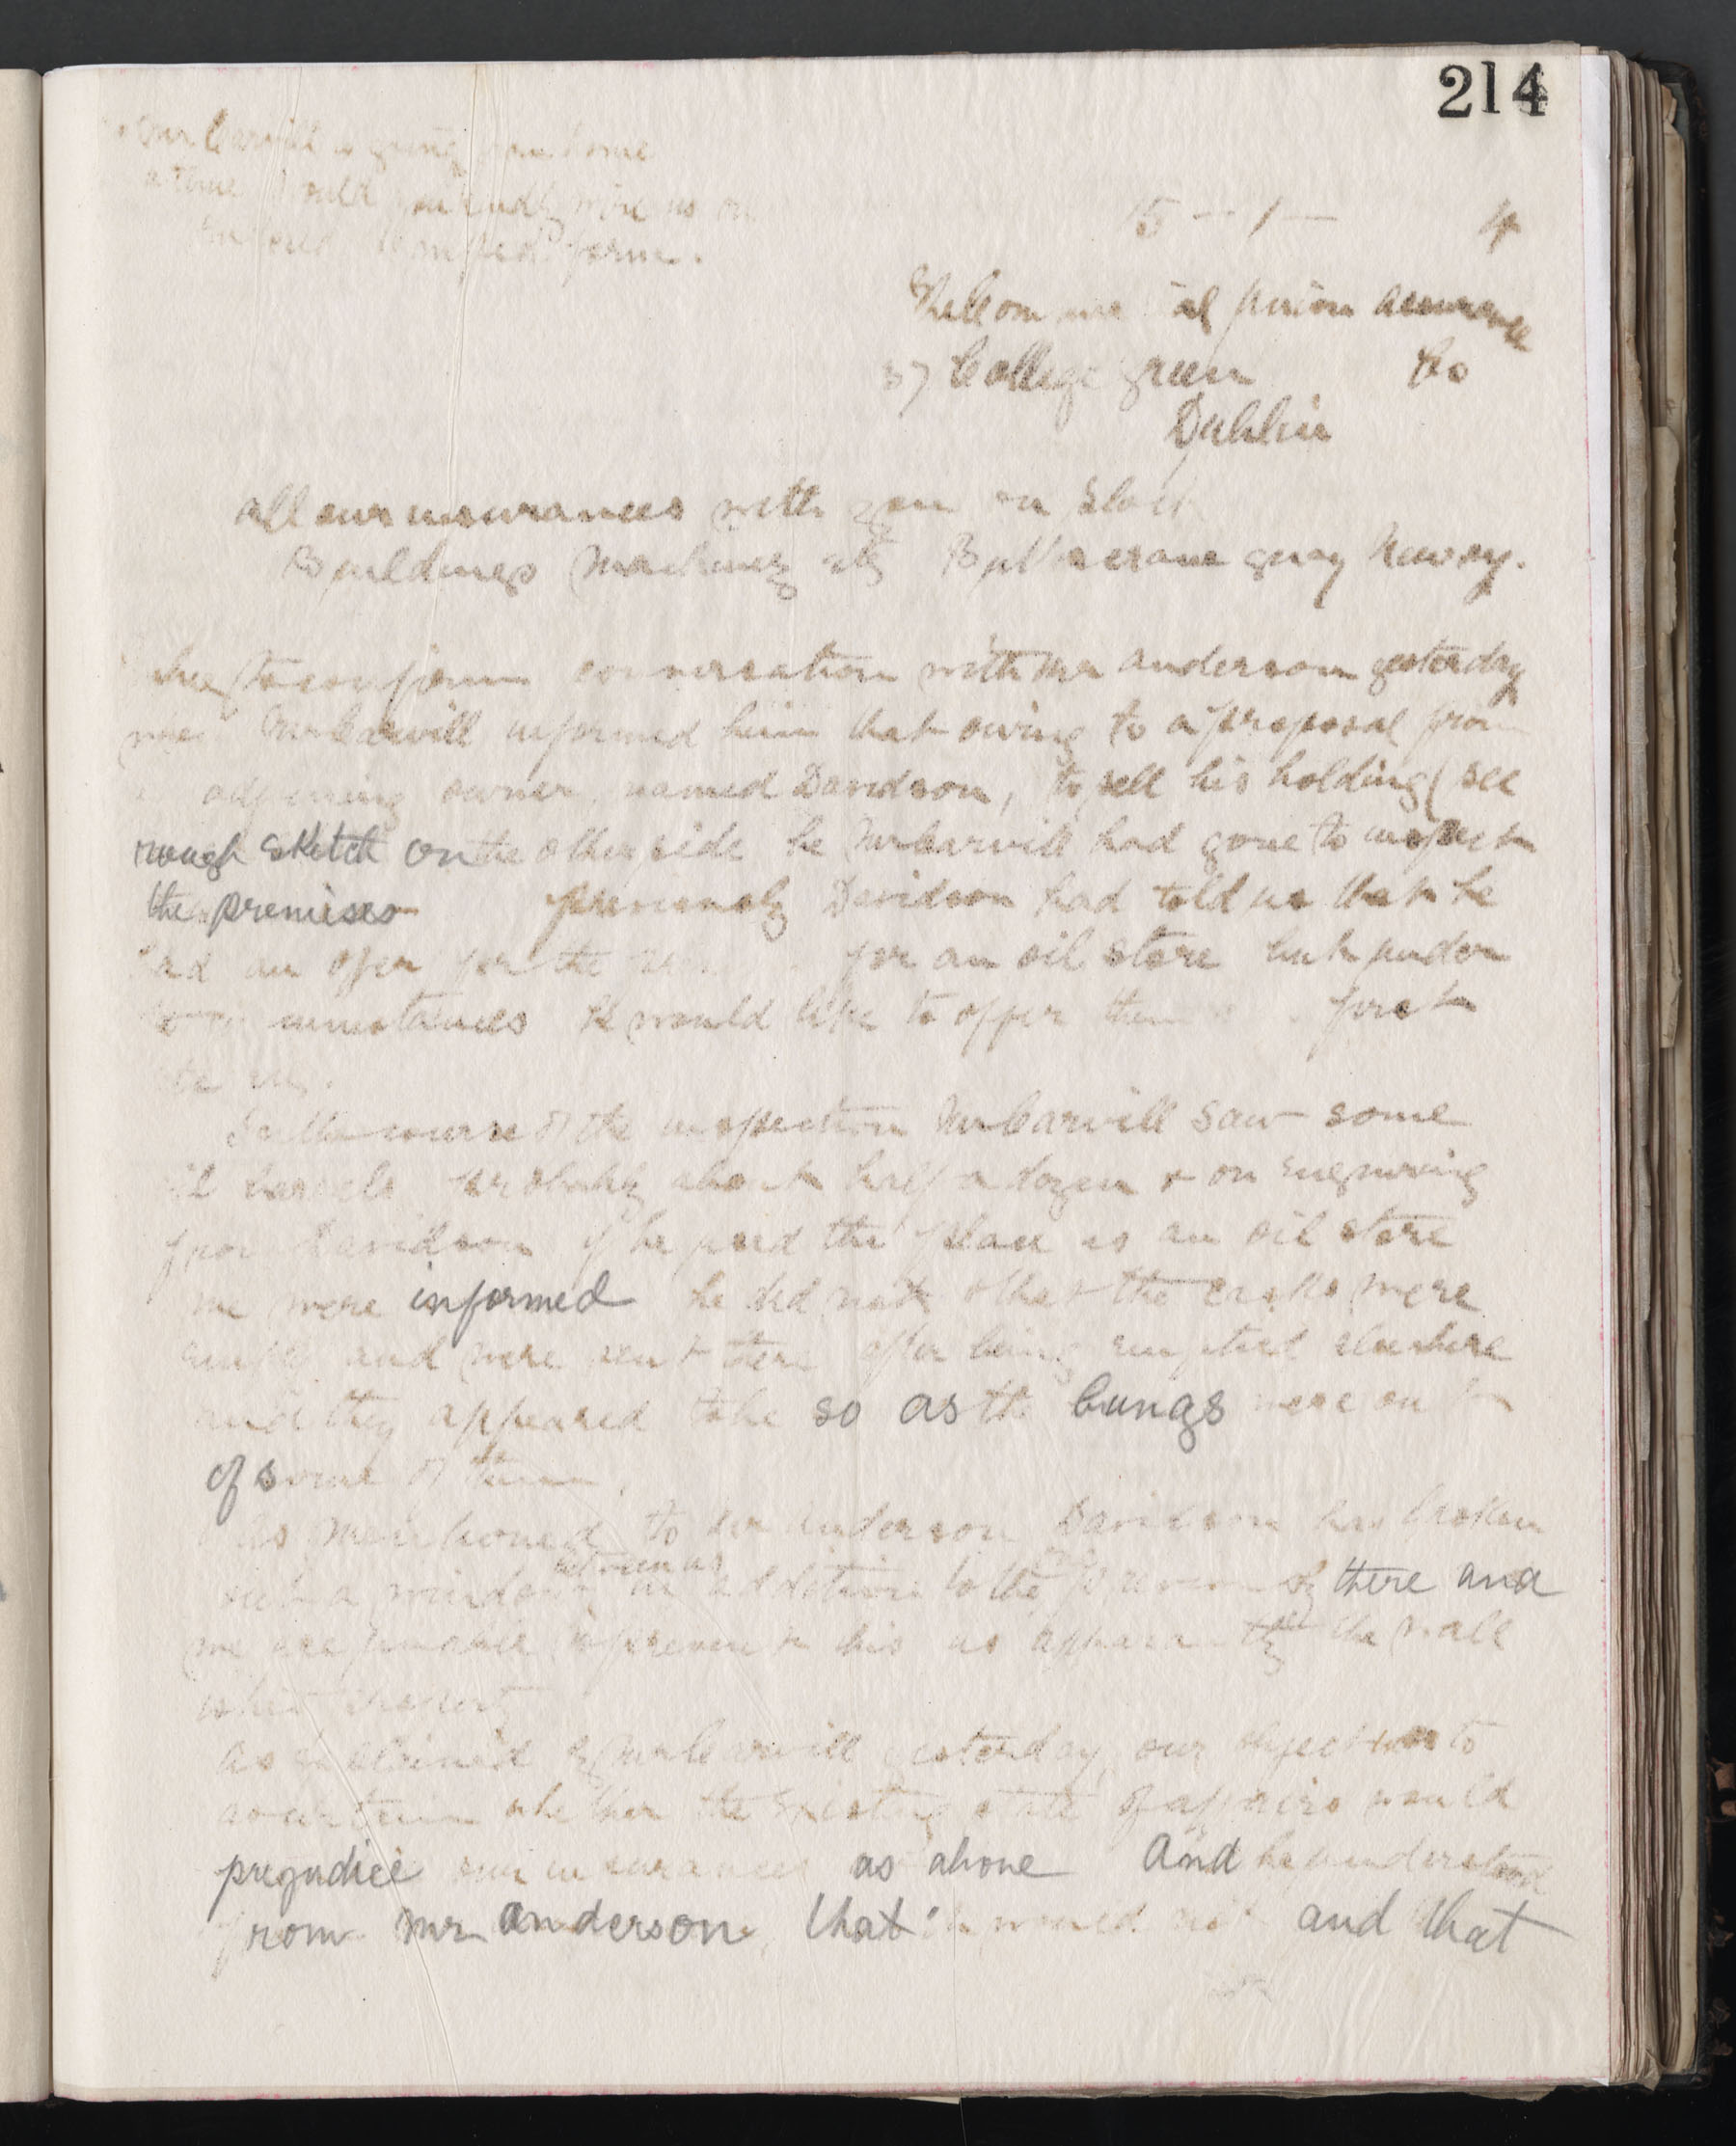 214
Mr Carvill is going from home
a time would you kindly wire us on
stamped form.
15 - 1 - 4
The Commercial Union Assurance
37 College Green Co
Dublin
all our insurances with you on Stock
Buildings Machinery etc Buttercrane quay Newry.
to confirm conversation with Mr Anderson yesterday
when Mr Carvill informed him that owing to a proposal from
adjoining owner, named Davidson, to sell his holding (see
rough sketch on the other side he Mr Carvill had gone to inspect
the premises previously Davidson had told us that he
had an offer for the for an oil store but under
circumstances he would like to offer them first
In the course of the inspection Mr Carvill saw some
oil barrels probably about half a dozen & on enquiring
from Davidson if he used the place as an oil store
we were informed he did not & that the casks were
empty and were sent there after being emptied elsewhere
and they appeared to be so as the bungs were out
of some of them.
As mentioned to Mr Anderson Davidson has broken
out a window between us in addition to the one previously there and
we are unable to prevent this as apparently the wall
is his property
As explained by Mr Carvill yesterday, our object was to
ascertain whether the existing state of affairs would
prejudice our insurances as above and he understood
from Mr Anderson, that it would not and that